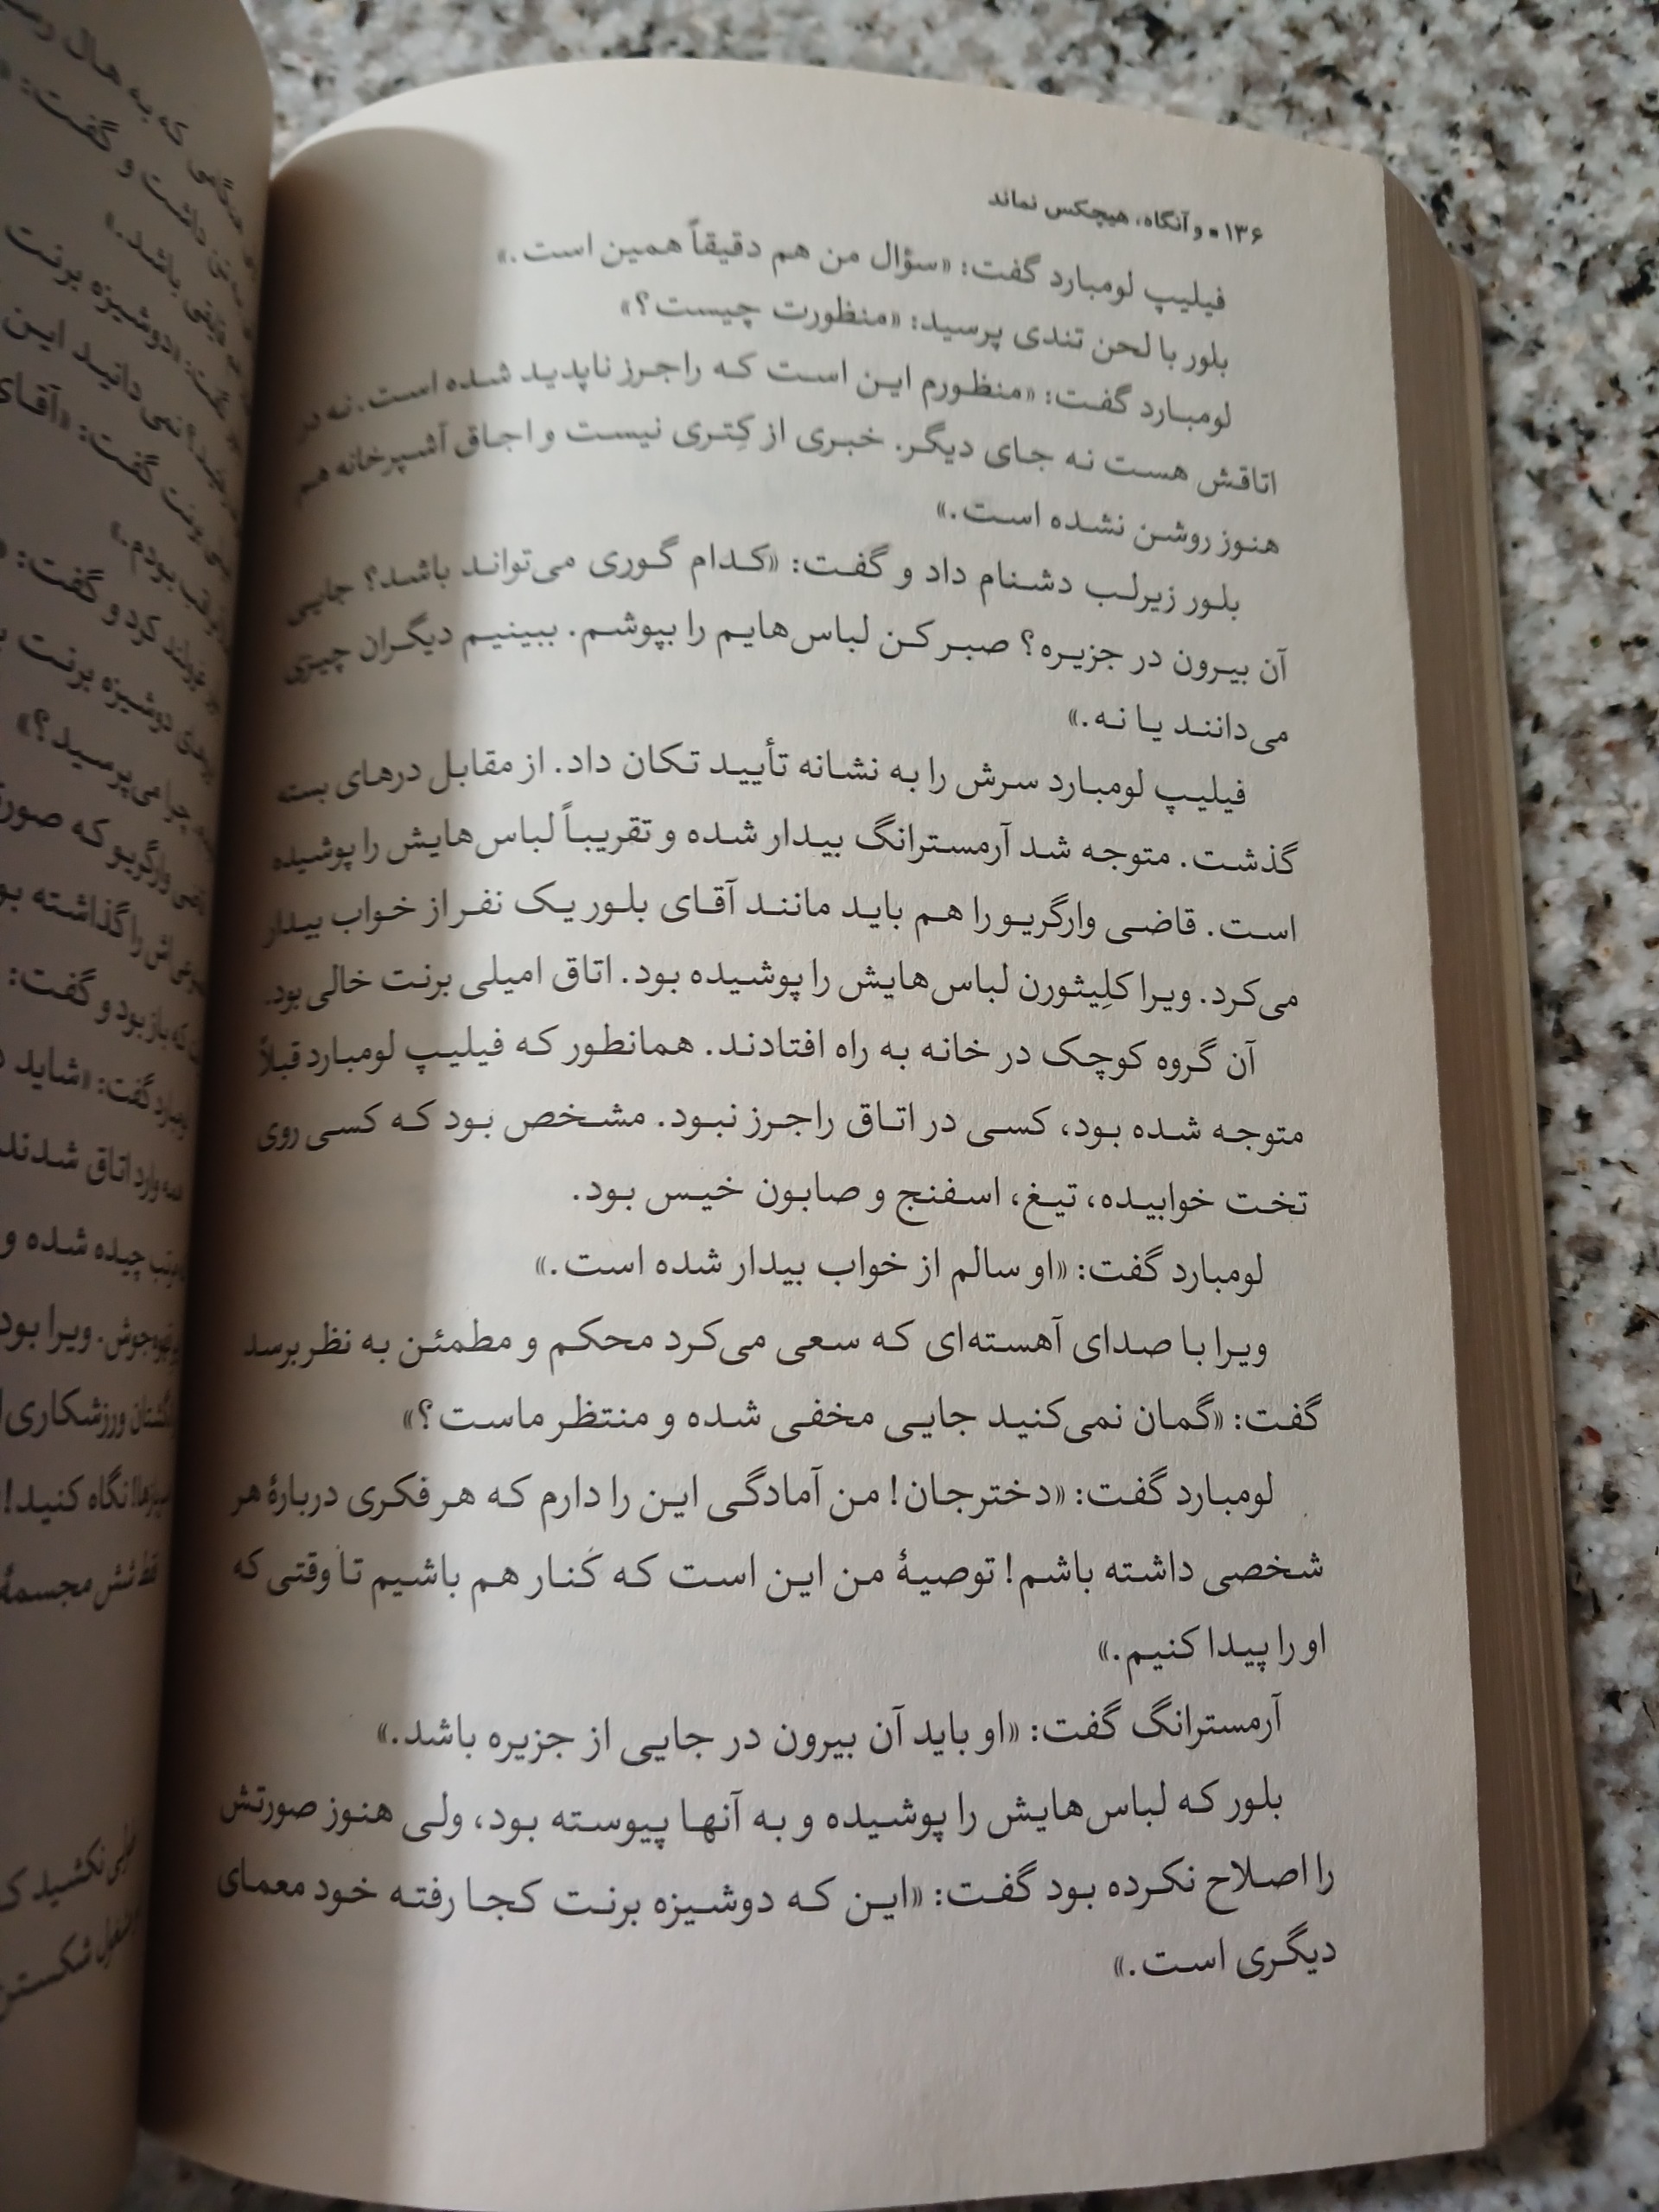 ۱۳۶ ■ و آنگاه، هیچکس نماند
فیلیپ لومبارد گفت: «سؤال من هم دقیقاً همین است.»
بلور با لحن تندی پرسید: «منظورت چیست؟»
لومبارد گفت: «منظورم این است که راجرز ناپدید شده است. نه در
اتاقش هست نه جای دیگر. خبری از کِتری نیست و اجاق آشپرخانه هم
هنوز روشن نشده است.»
بلور زیرلب دشنام داد و گفت: «کدام گوری می‌تواند باشد؟ جایی
آن بیرون در جزیره؟ صبر کن لباس‌هایم را بپوشم. ببینیم دیگران چیزی
می‌دانند یا نه.»
فیلیپ لومبارد سرش را به نشانه تأیید تکان داد. از مقابل درهای بسته
گذشت. متوجه شد آرمسترانگ بیدار شده و تقریباً لباس‌هایش را پوشیده
است. قاضی وارگریو را هم باید مانند آقای بلور یک نفر از خواب بیدار
می‌کرد. ویرا کلِیثورن لباس‌هایش را پوشیده بود. اتاق امیلی برنت خالی بود.
آن گروه کوچک در خانه به راه افتادند. همانطور که فیلیپ لومبارد قبلاً
متوجه شده بود، کسی در اتاق راجرز نبود. مشخص بود که کسی روی
تخت خوابیده، تیغ، اسفنج و صابون خیس بود.
لومبارد گفت: «او سالم از خواب بیدار شده است.»
ویرا با صدای آهسته‌ای که سعی می‌کرد محکم و مطمئن به نظر برسد
گفت: «گمان نمی‌کنید جایی مخفی شده و منتظر ماست؟»
لومبارد گفت: «دخترجان! من آمادگی این را دارم که هر فکری دربارهٔ هر
شخصی داشته باشم! توصیهٔ من این است که کنار هم باشیم تا وقتی که
او را پیدا کنیم.»
آرمسترانگ گفت: «او باید آن بیرون در جایی از جزیره باشد.»
بلور که لباس‌هایش را پوشیده و به آنها پیوسته بود، ولی هنوز صورتش
را اصلاح نکرده بود گفت: «این که دوشیزه برنت کجا رفته خود معمای
دیگری است.»